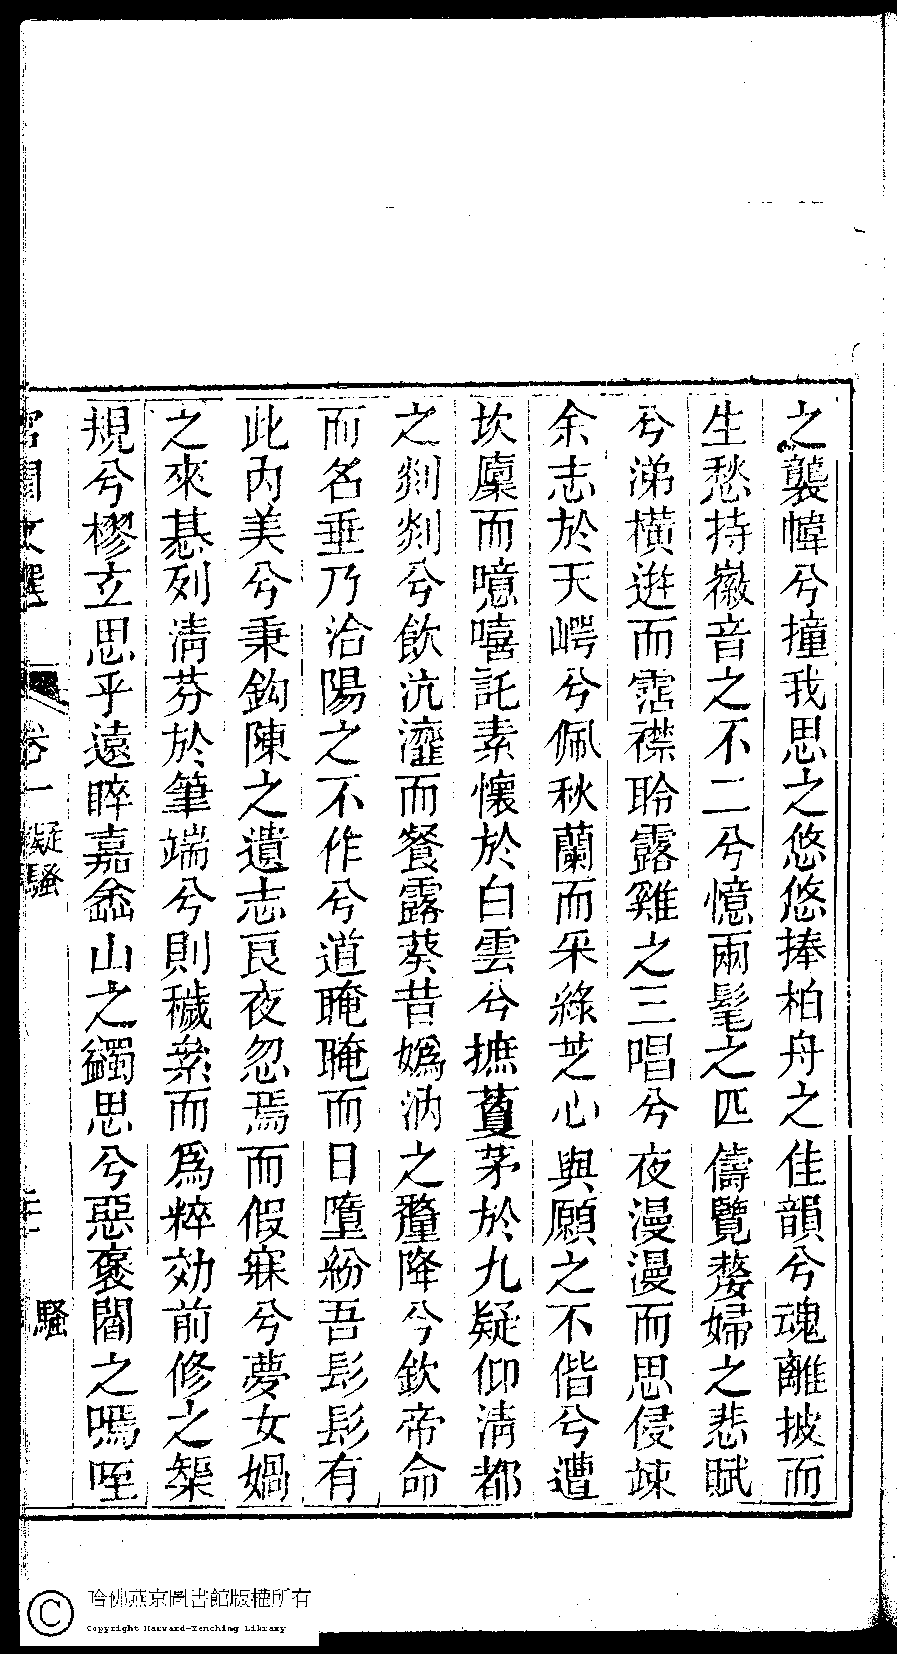 之襲幃兮撞我思之悠悠捧柏舟之佳韻兮魂離披而
生愁持徽音之不二兮憶兩髦之匹儔覽嫠婦之悲賦
兮涕橫逝而霑襟聆露雞之三唱兮夜漫漫而思侵竦
余志於天崿兮佩秋蘭而采綠芝心與願之不偕兮遭
坎廩而噫嘻託素懷於白雲兮摭藑茅於九疑仰淸都
之剡剡兮飲沆瀣而餐露葵昔嬀汭之釐降兮欽帝命
而名垂乃洽陽之不作兮道晻晻而日墮紛吾髟髟有
此內美兮秉鈎陳之遺志艮夜忽焉而假寐兮夢女媧
之來綦列淸芬於筆端兮則穢絫而爲粹効前修之榘
規兮樛立思乎遠睟嘉嵞山之蠲思兮惡褒閻之嘕咥
宮閨文選 卷一 擬騷 騷
哈佛燕京圖書館版權所有
Copyright Harvard-Yenching Library